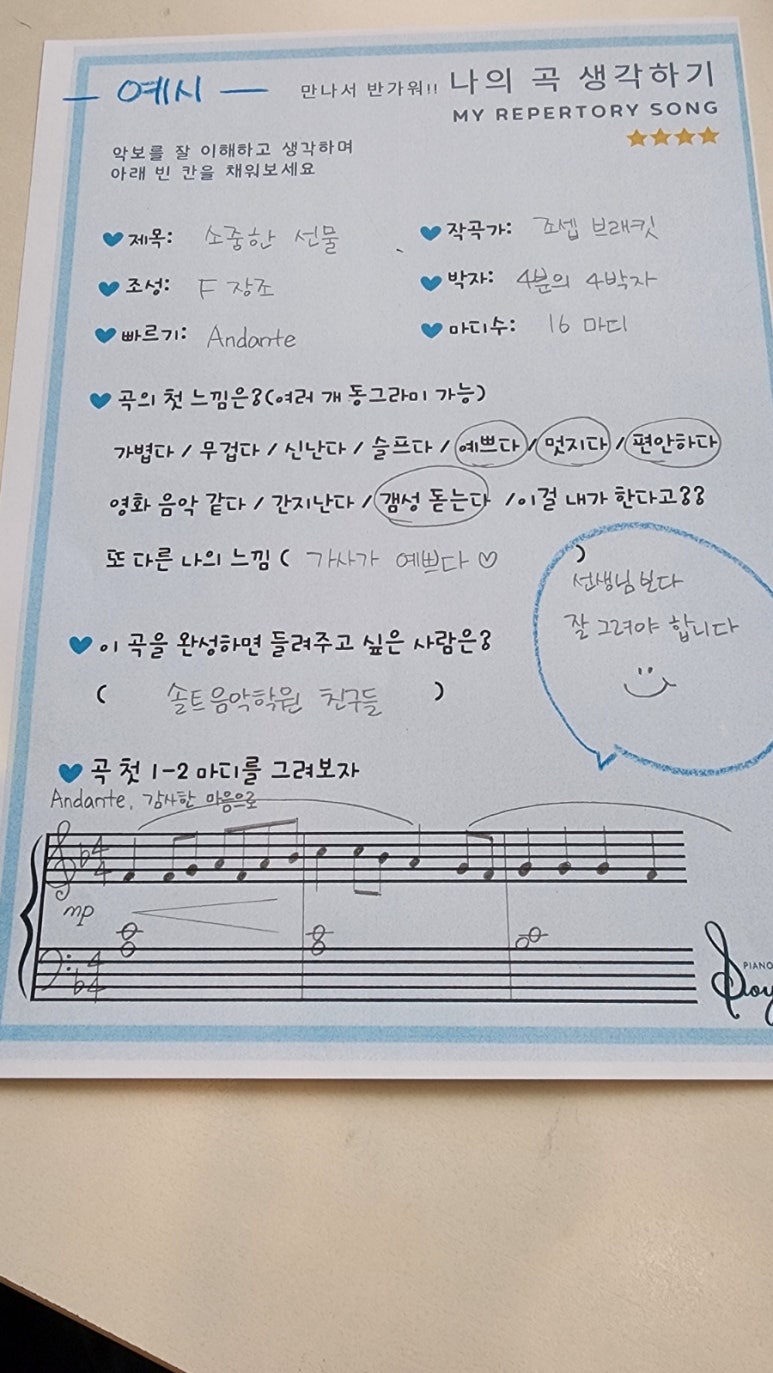 예시
만나서 반가워!! 나의 곡 생각하기
MY REPERTORY SONG
악보를 잘 이해하고 생각하며
아래 빈 칸을 채워보세요
제목: 소중한 선물
작곡가: 조셉 브래킷
조성: F 장조
박자: 4분의 4박자
빠르기: Andante
마디수: 16 마디
곡의 첫 느낌은?(여러 개 동그라미 가능)
가볍다 / 무겁다 / 신난다 / 슬프다 / 예쁘다 / 멋지다 / 편안하다
영화 음악 같다 / 간지난다 / 갬성 돋는다 / 이걸 내가 한다고??
또 다른 나의 느낌 ( 가사가 예쁘다 ♡ )
선생님보다
잘 그려야 합니다
이 곡을 완성하면 들려주고 싶은 사람은?
( 솔트음악학원 친구들 )
곡 첫 1-2 마디를 그려보자
Andante, 감사한 마음으로
4
4
mp
4
4
PIANO